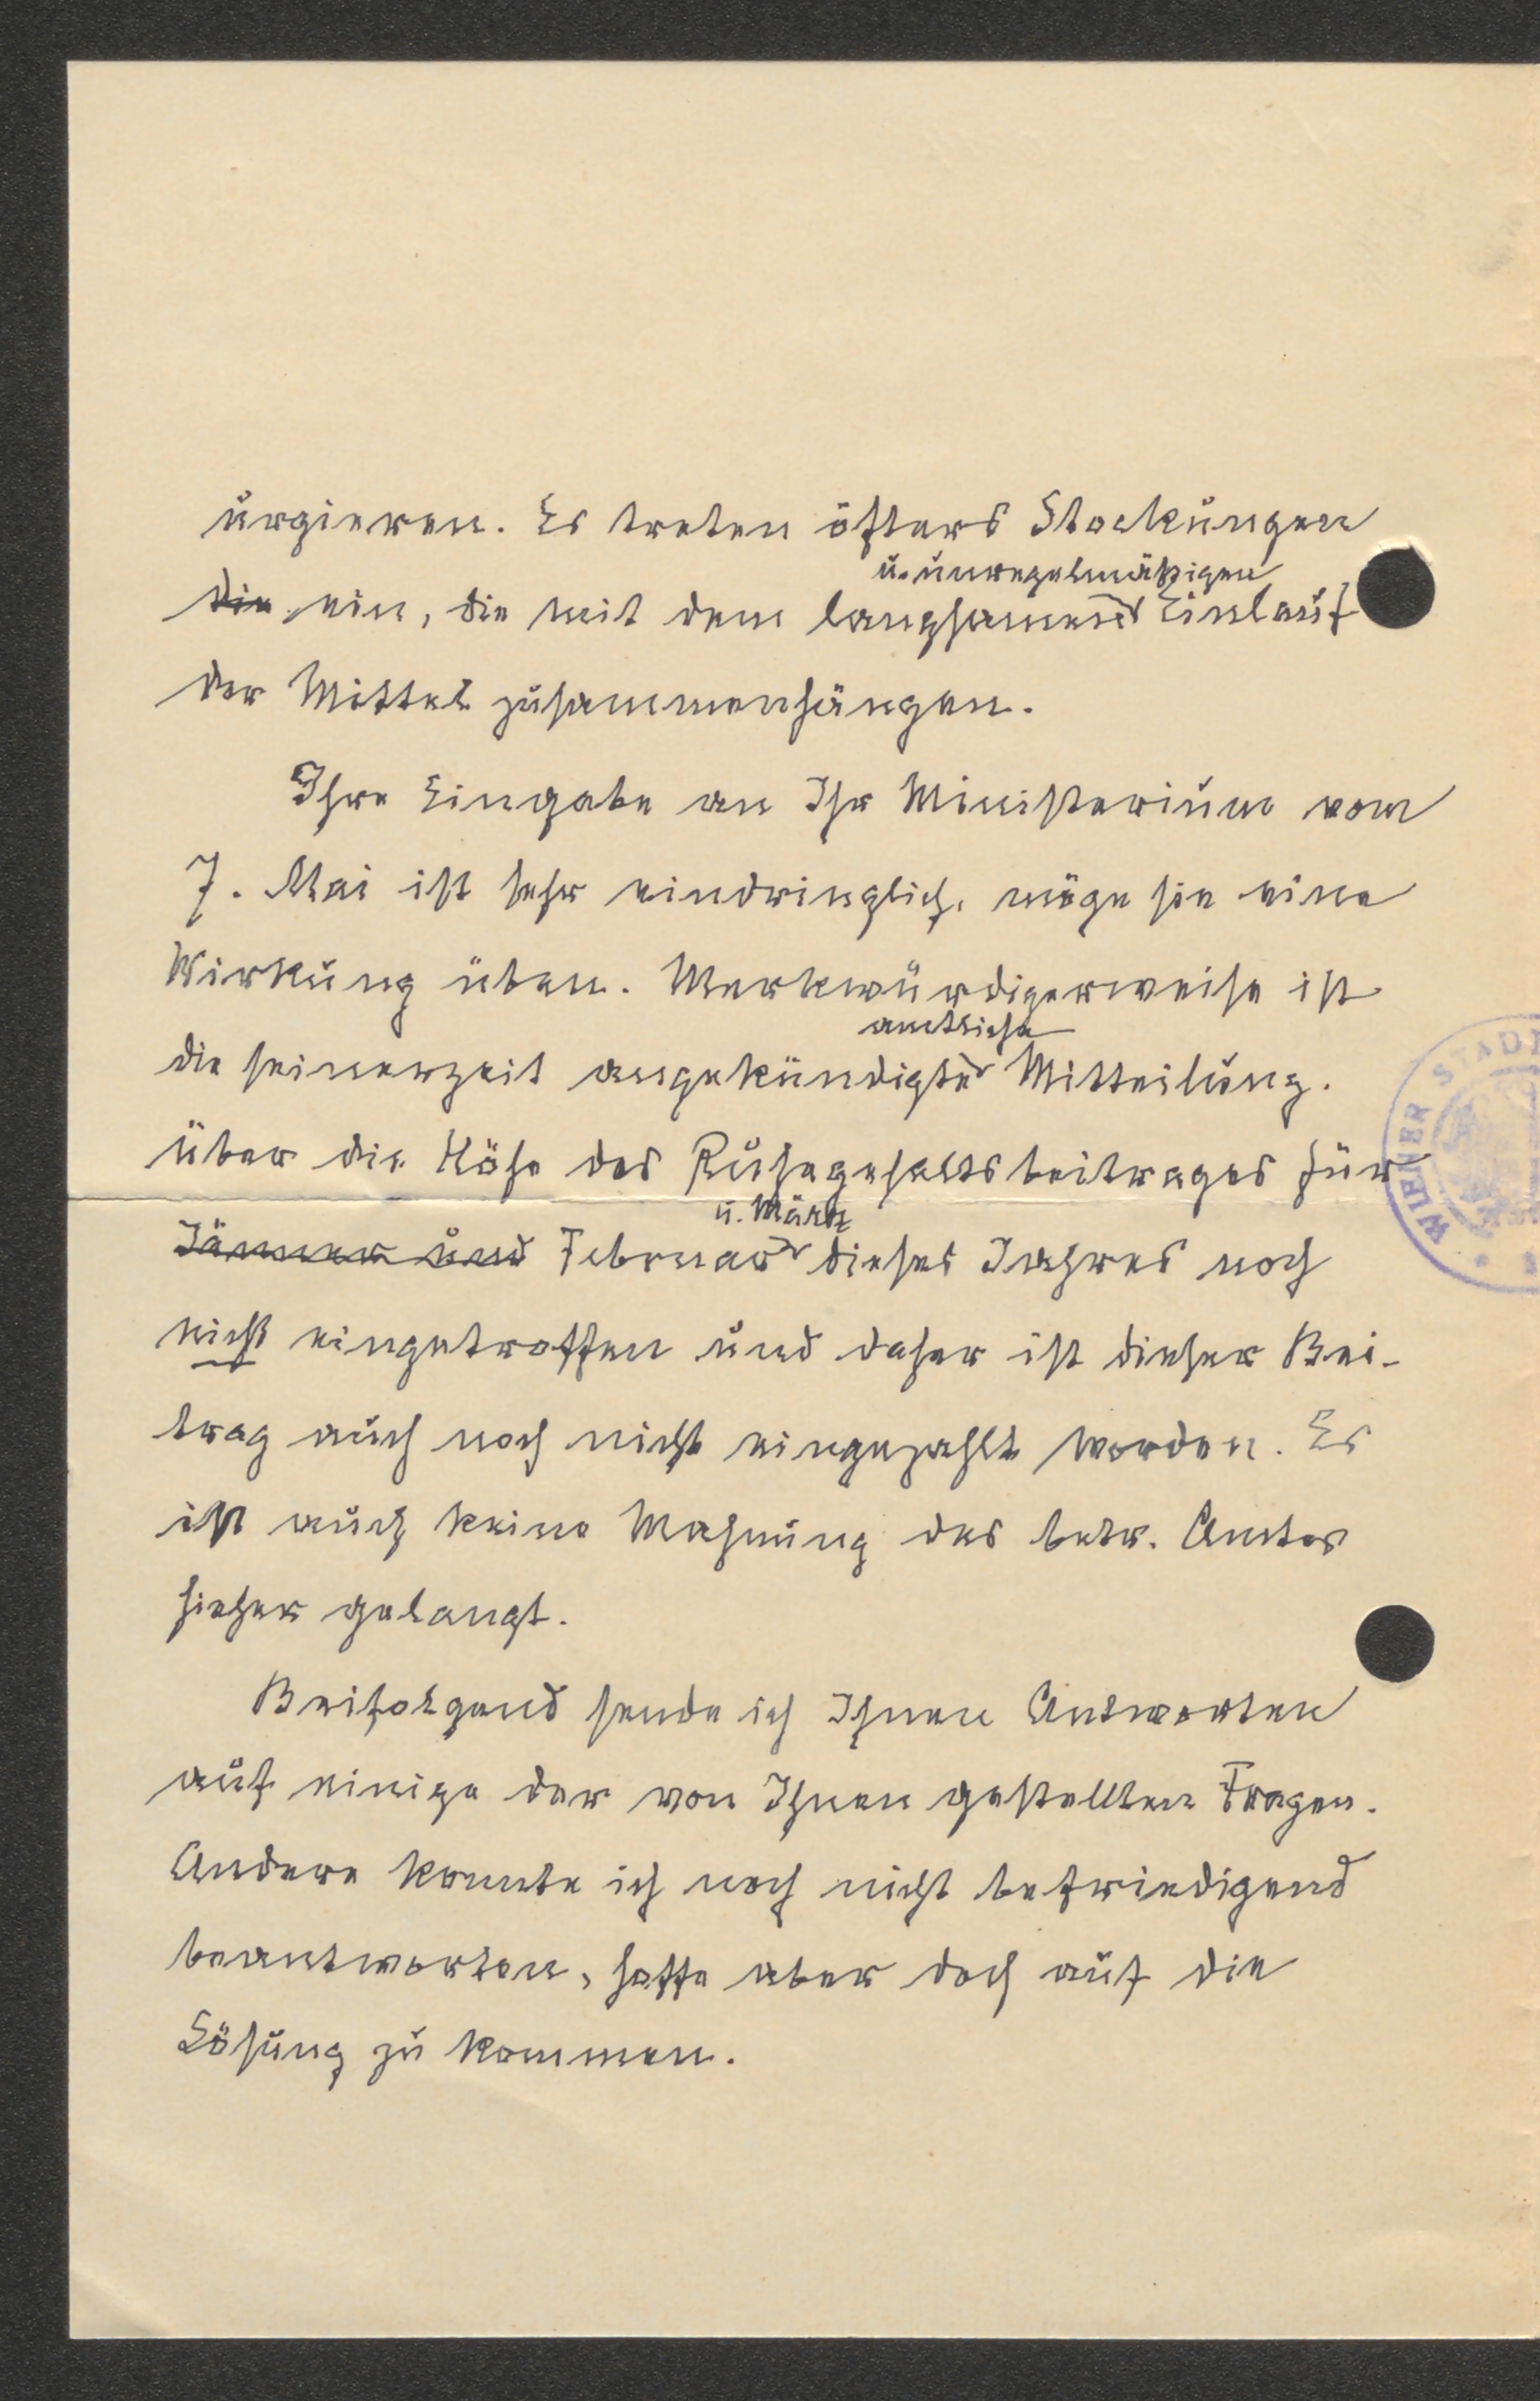 urgieren. Es treten öfters Stockungen
u. unregelmäßigen
die ein, die mit dem langsamen Einlauf
der Mittel zusammenhängen.
Ihre Eingabe an Ihr Ministerium vom
7. Mai ist sehr eindringlich, möge sie eine
Wirkung üben. Merkwürdigerweise ist
amtliche
die seinerzeit angekündigte Mitteilung.
über die Höhe des Ruhegehaltsbeitrages für
u. März
Jänner und Februar dieses Jahres noch
nicht eingetroffen und daher ist dieser Bei-
trag auch noch nicht eingezahlt worden. Es
ist auch keine Mahnung des betr. Amtes
hieher gelangt.
Beifolgend sende ich Ihnen Antworten
auf einige der von Ihnen gestellten Fragen.
Andere konnte ich noch nicht befriedigend
beantworten, hoffe aber doch auf die
Lösung zu kommen.
WIENER STADT